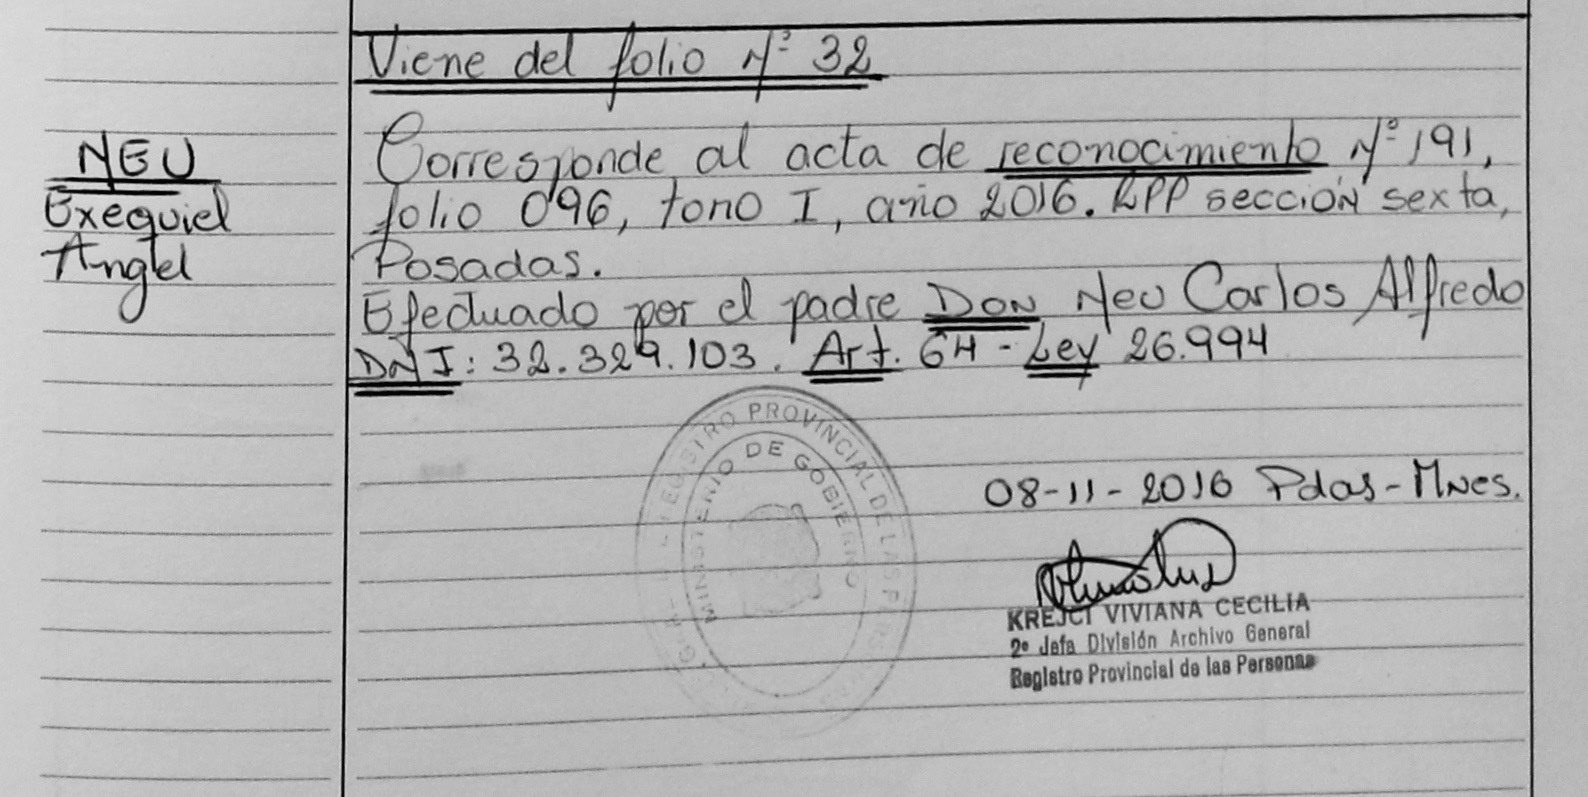 Viene del folio Nº 32
NEU
Exequiel
Angel
Corresponde al acta de reconocimiento Nº 191,
folio 096, tomo I, año 2016. RPP sección sexta,
Posadas.
Efectuado por el padre DON Neu Carlos Alfredo
DNI: 32.329.103. Art. 64 - Ley 26.994
REGISTRO PROVINCIAL DE LAS PERSONAS
MINISTERIO DE GOBIERNO
08-11-2016 Pdas-Mnes.
KREJCI VIVIANA CECILIA
2º Jefa División Archivo General
Registro Provincial de las Personas